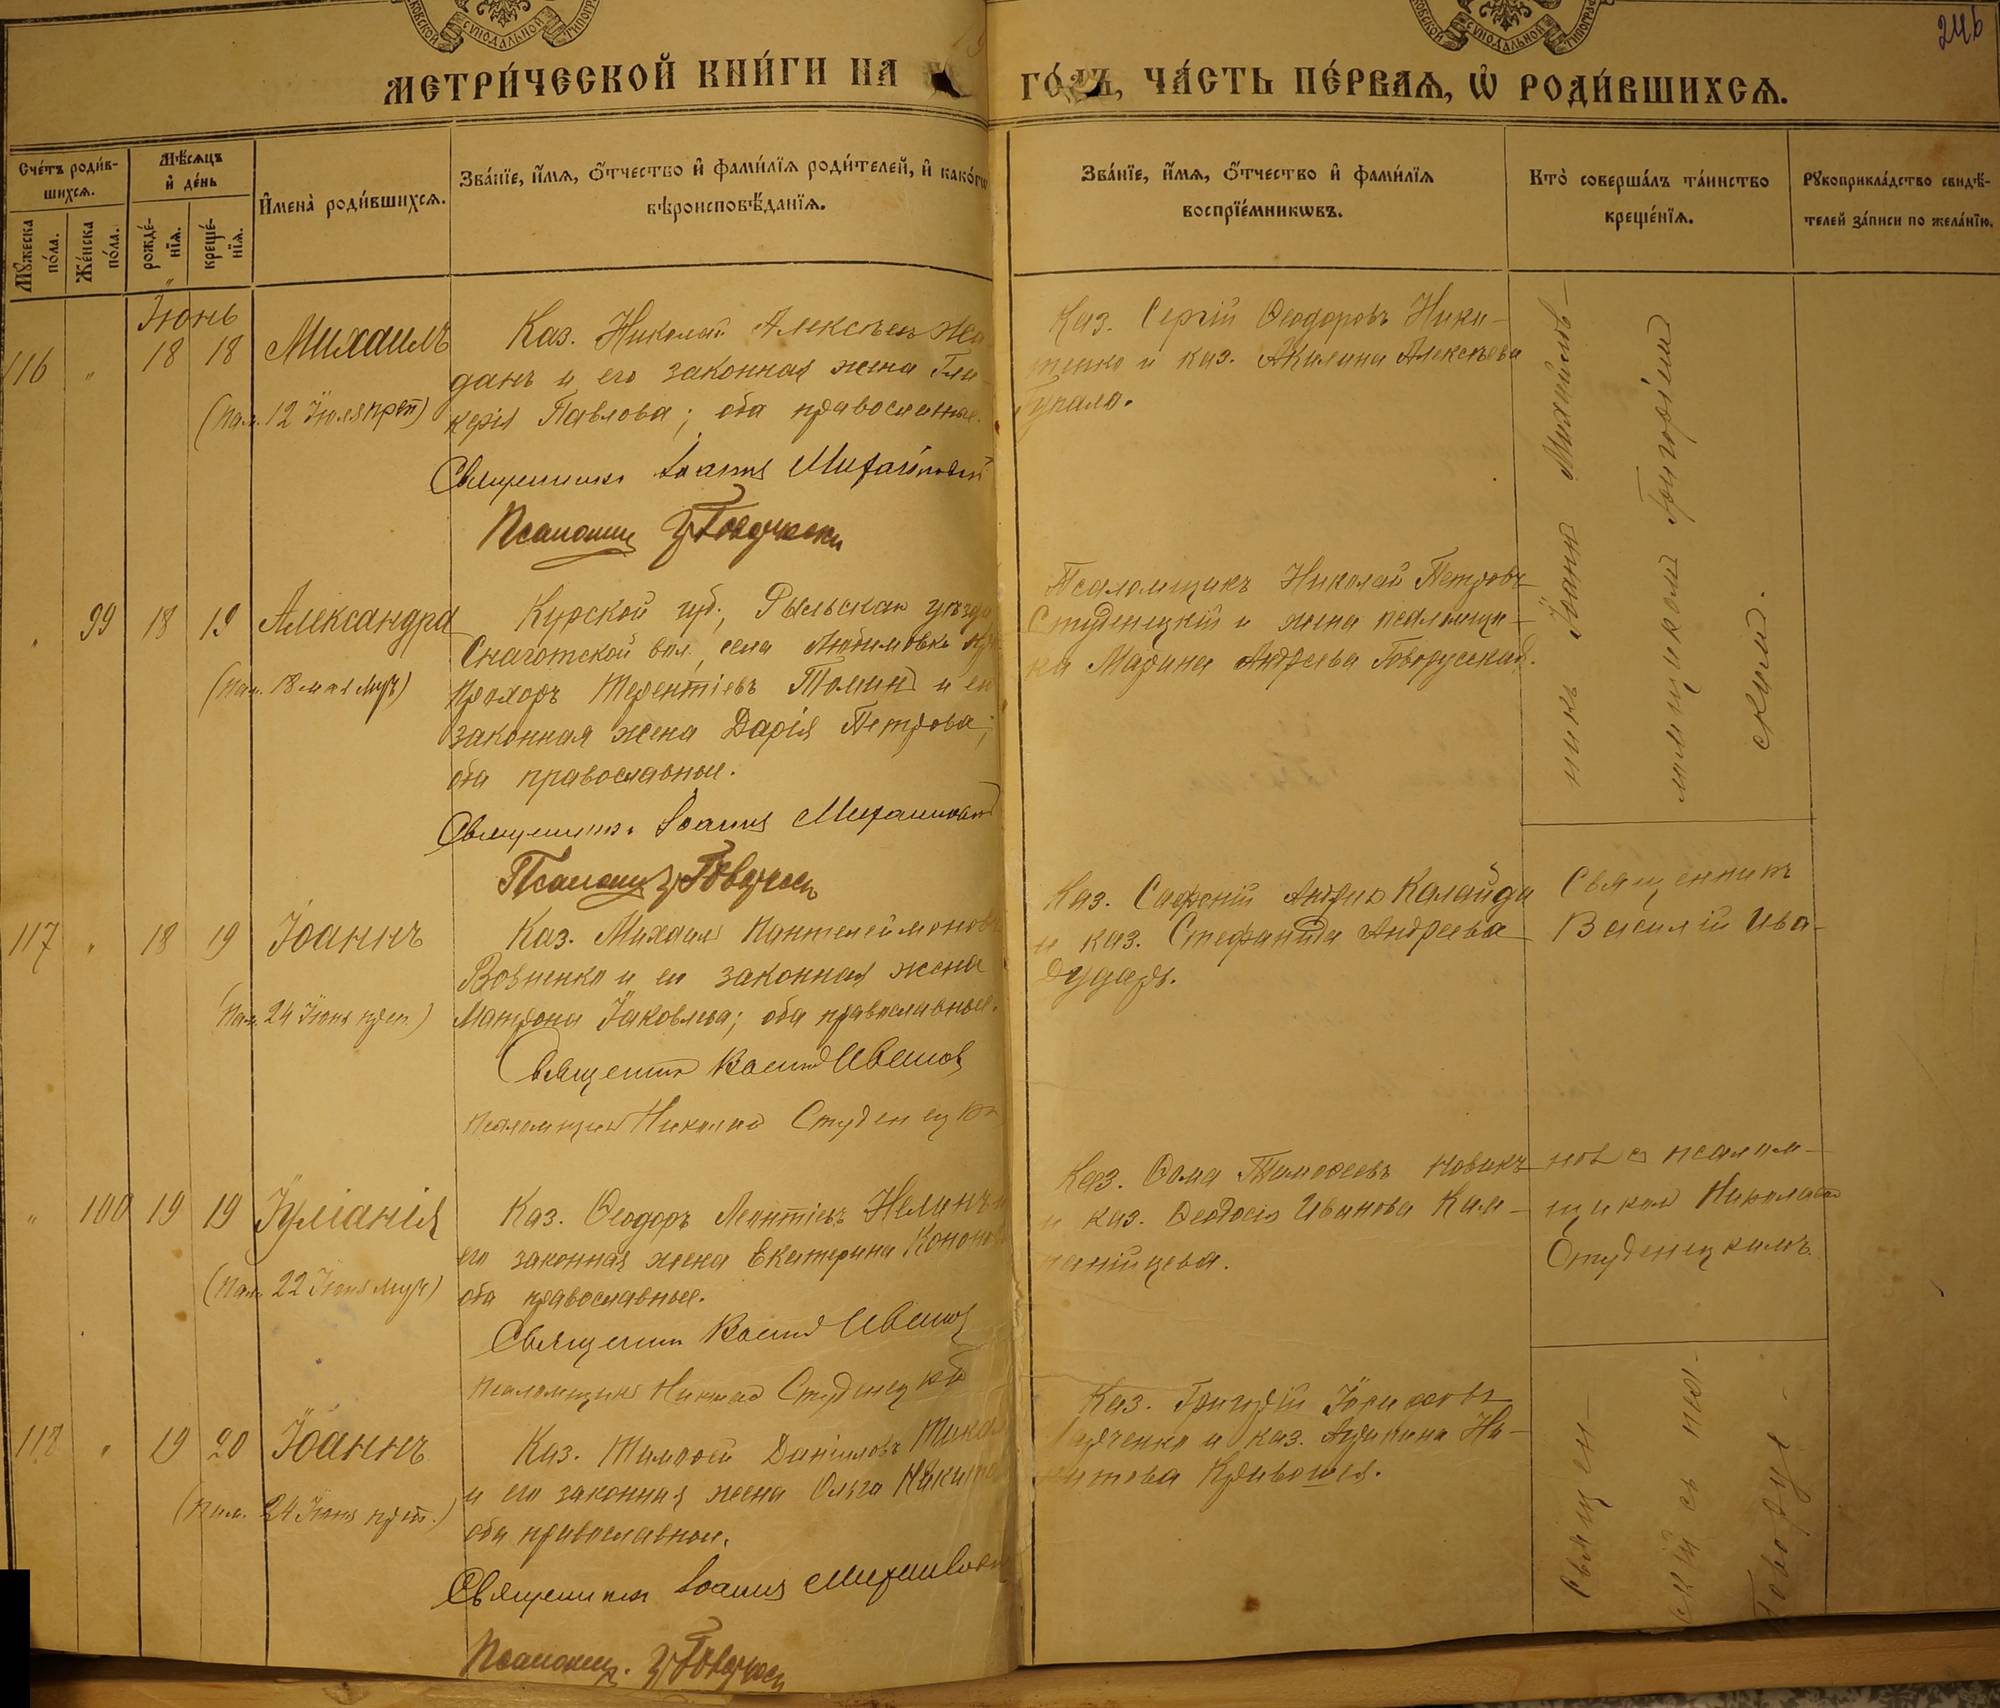 246
МЕТРИ́ЧЕСКОЙ КНИ́ГИ НА ГО́ДЪ, ЧА́СТЬ ПЕ́РВАѦ, Ѡ РОДИ́ВШИХСѦ.
Сче́тъ роди́в-
шихсѧ.
Мꙋ́жеска по́ла.
Же́нска по́ла.
Мѣ́сѧцъ
и де́нь
рожде́-
нїѧ.
креще́-
нїѧ.
Имена̀ роди́вшихсѧ.
Зва́нїе, и́мѧ, ѻ́тчество и фами́лїѧ роди́телей, и како́гѡ
вѣроисповѣ́данїѧ.
Зва́нїе, и́мѧ, ѻ́тчество и фами́лїѧ
воспрїе́мникѡвъ.
Кто̀ соверша́лъ та́инство
креще́нїѧ.
Рꙋкоприкла́дство свидѣ́-
телей за́писи по жела́нїю.
Іюнь
116 " 18 18 Михаилъ
(Пам. 12 Іюля преп)
Каз. Николай Алексѣевъ Жа
данъ и его законная жена Гли-
керія Павлова; оба православные.
Священникъ Іоаннъ Михайловскій
Псаломщ.
Каз. Сергій Ѳеодоровъ Ники-
тенко и каз. Акилина Алексѣева
Гупало.
никъ Іоаннъ Михайлов-
ломщикомъ Григоріемъ
скимъ.
" 99 18 19 Александра
(Пам. 18 мая муч)
Курской губ., Рыльскаго уѣзда
Снаготской вол., села Любимовки
Прохоръ Терентіевъ Томинъ и его
законная жена Дарія Петрова;
оба православные.
Священникъ Іоаннъ Михайловскій
Псаломщ.
Псаломщикъ Николай Петровъ
Студенецкій и жена псаломщи-
ка Марина Андреева Говорусская.
117 " 18 19 Іоаннъ
(Пам. 24 Іюня преп.)
Каз. Михаилъ Пантелеймоновъ
Вовненко и его законная жена
Матрона Іаковлева; оба православные.
Священник Василій Иванов
псаломщикъ Николай Студенецкій
Каз. Савреній Андреевъ Калайда
и каз. Стефанида Андреева
Дударь.
Священникъ
Василій Ива-
" 100 19 19 Іуліанія
(Пам. 22 Іюня муч)
Каз. Ѳеодоръ Леонтіевъ Нелинъ и
его законная жена Екатерина Кононова
оба православные.
Священник Василій Иванов
псаломщикъ Николай Студенецкій
Каз. Ѳома Тимоѳеевъ Новикъ
и каз. Ѳеодосія Иванова Кам-
панійцева.
новъ съ псалом-
щикомъ Николаемъ
Студенецкимъ.
118 " 19 20 Іоаннъ
(Пам. 24 Іюня прет.)
Каз. Тимоѳей Даніиловъ
и его законная жена Ольга Никитова
оба православные.
Священникъ Іоаннъ Михайловскій
Псаломщ.
Каз. Григорій
и каз. Агрипина Ни-
китова Кривошея.
Священ-
скій съ псал-
Говорус-